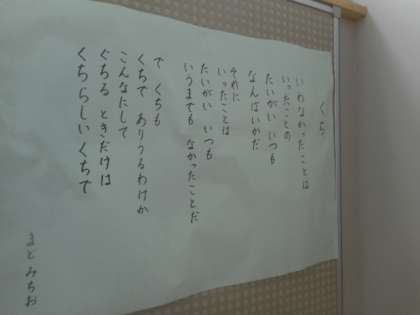 くち
いわなかったことは
いったことの
たいがい いつも
なんばいかだ
それに
いったことは
たいがい いつも
いうまでも なかったことだ
で くちも
くちで ありうるわけか
こんなにして
ぐちる ときだけは
くちらしいくちで
まど みちお